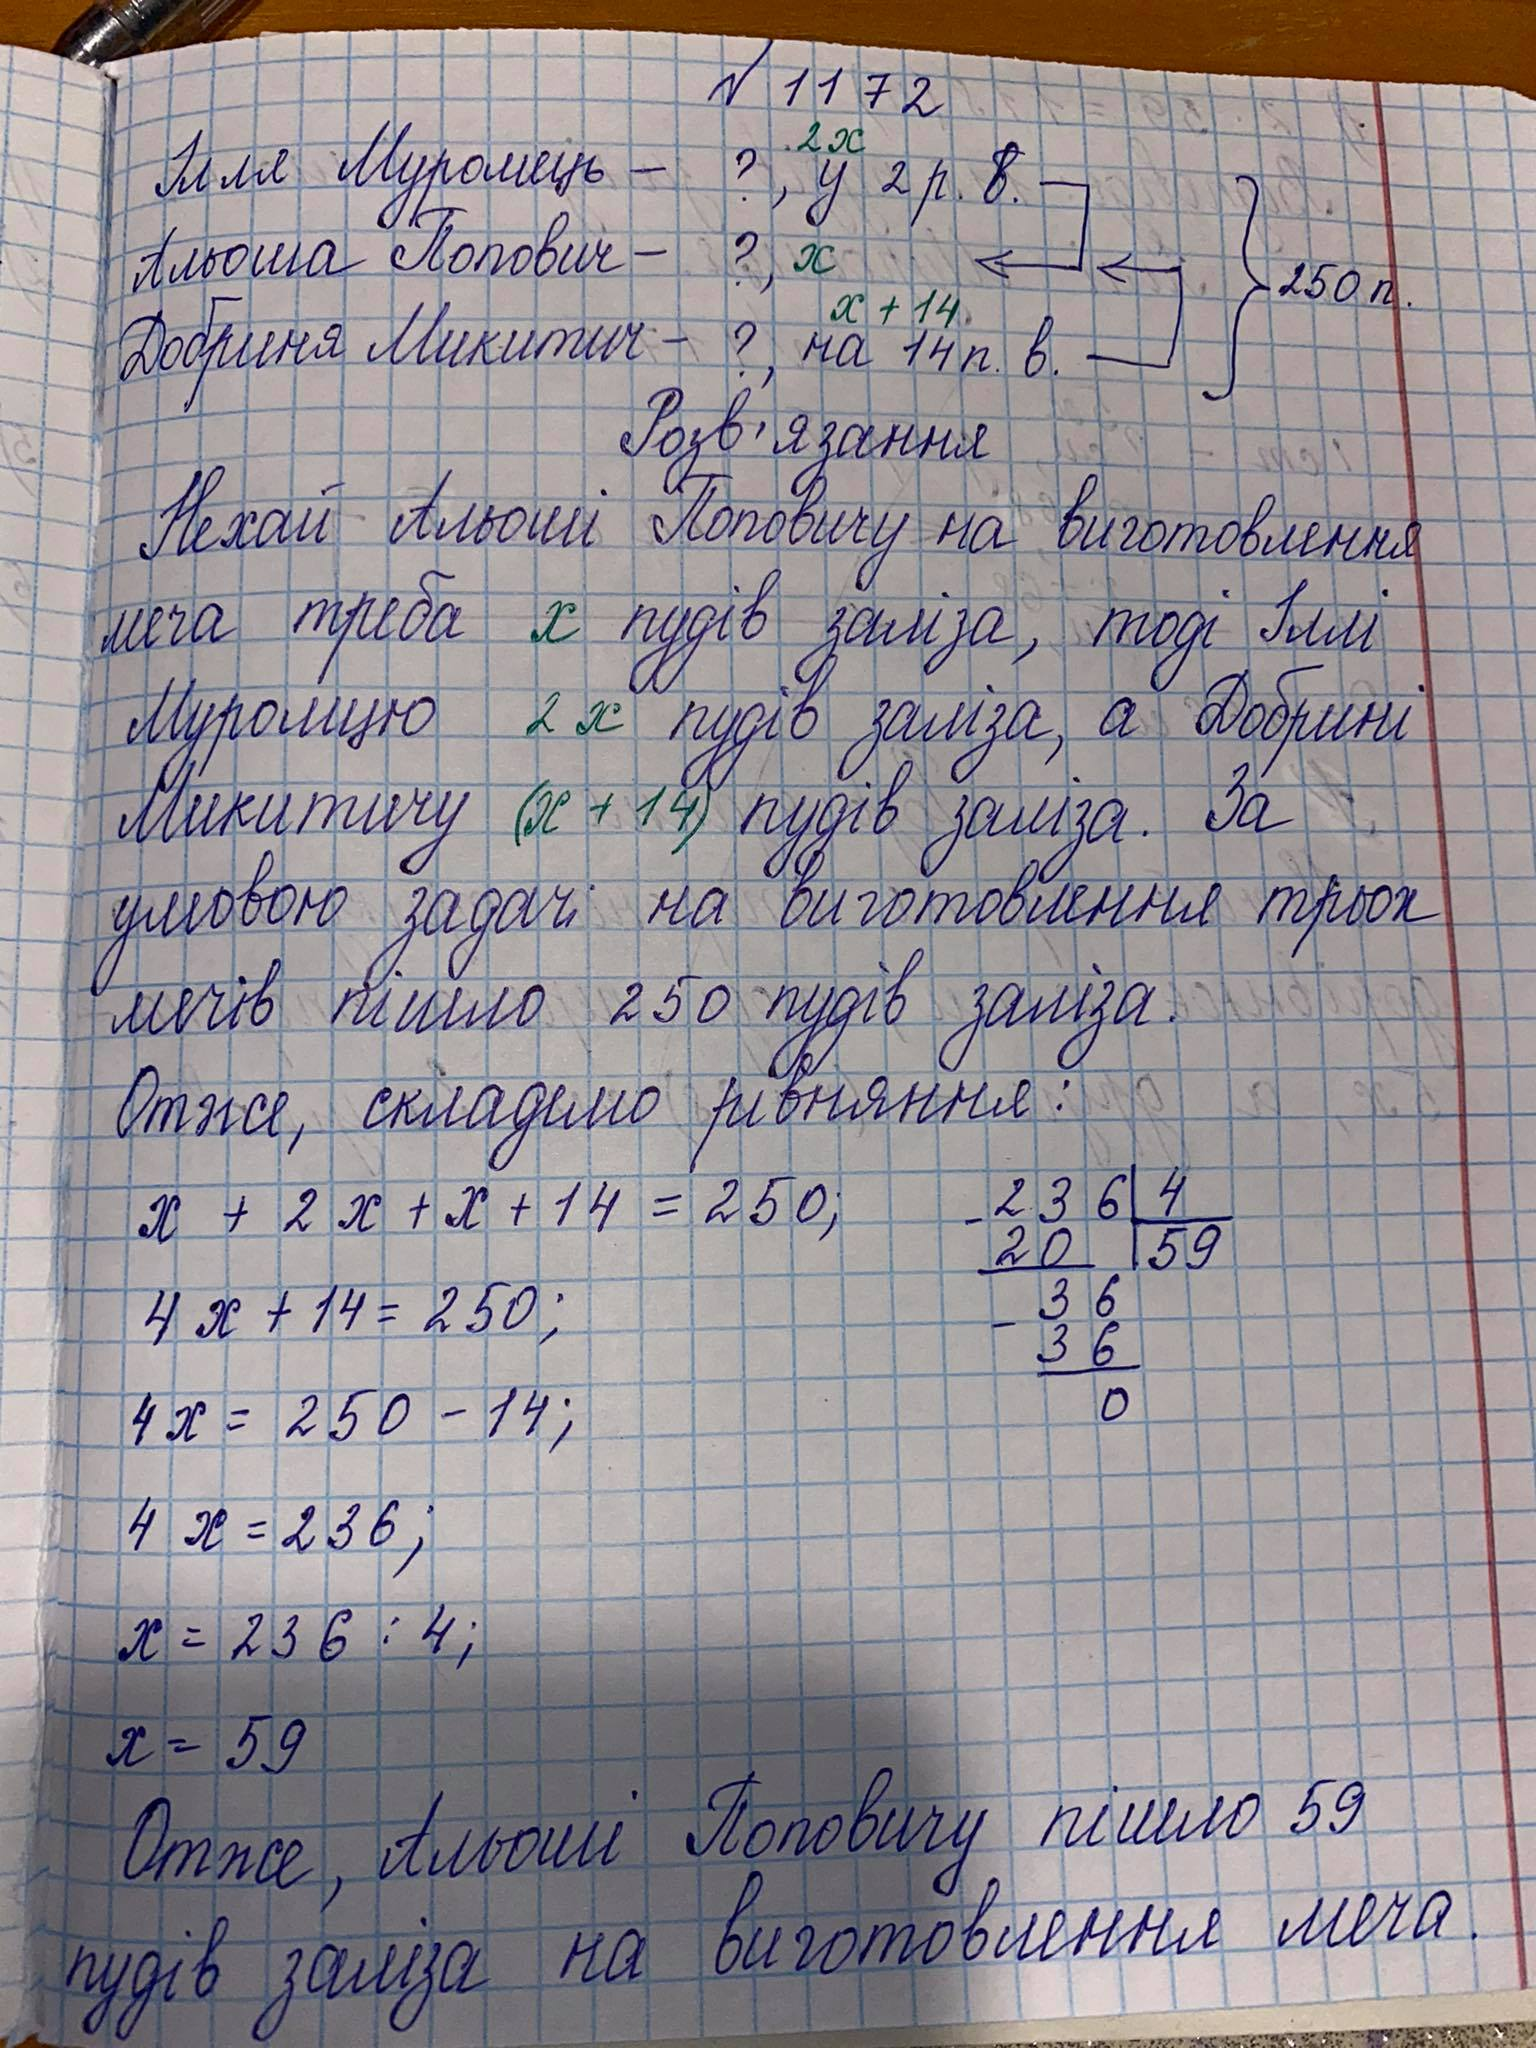 № 1172
2x
Ілля Муромець – ?, у 2 р. б.
Альоша Попович – ?, x
250 п.
x + 14
Добриня Микитич – ?, на 14 п. б.
Розв'язання
Нехай Альоші Поповичу на виготовлення
меча треба x пудів заліза, тоді Іллі
Муромцю 2x пудів заліза, а Добрині
Микитичу (x + 14) пудів заліза. За
умовою задачі на виготовлення трьох
мечів пішло 250 пудів заліза.
Отже, складемо рівняння:
x + 2x + x + 14 = 250;
4x + 14 = 250;
4x = 250 – 14;
4x = 236;
x = 236 : 4;
x = 59
– 236 | 4
20 | 59
– 36
36
0
Отже, Альоші Поповичу пішло 59
пудів заліза на виготовлення меча.